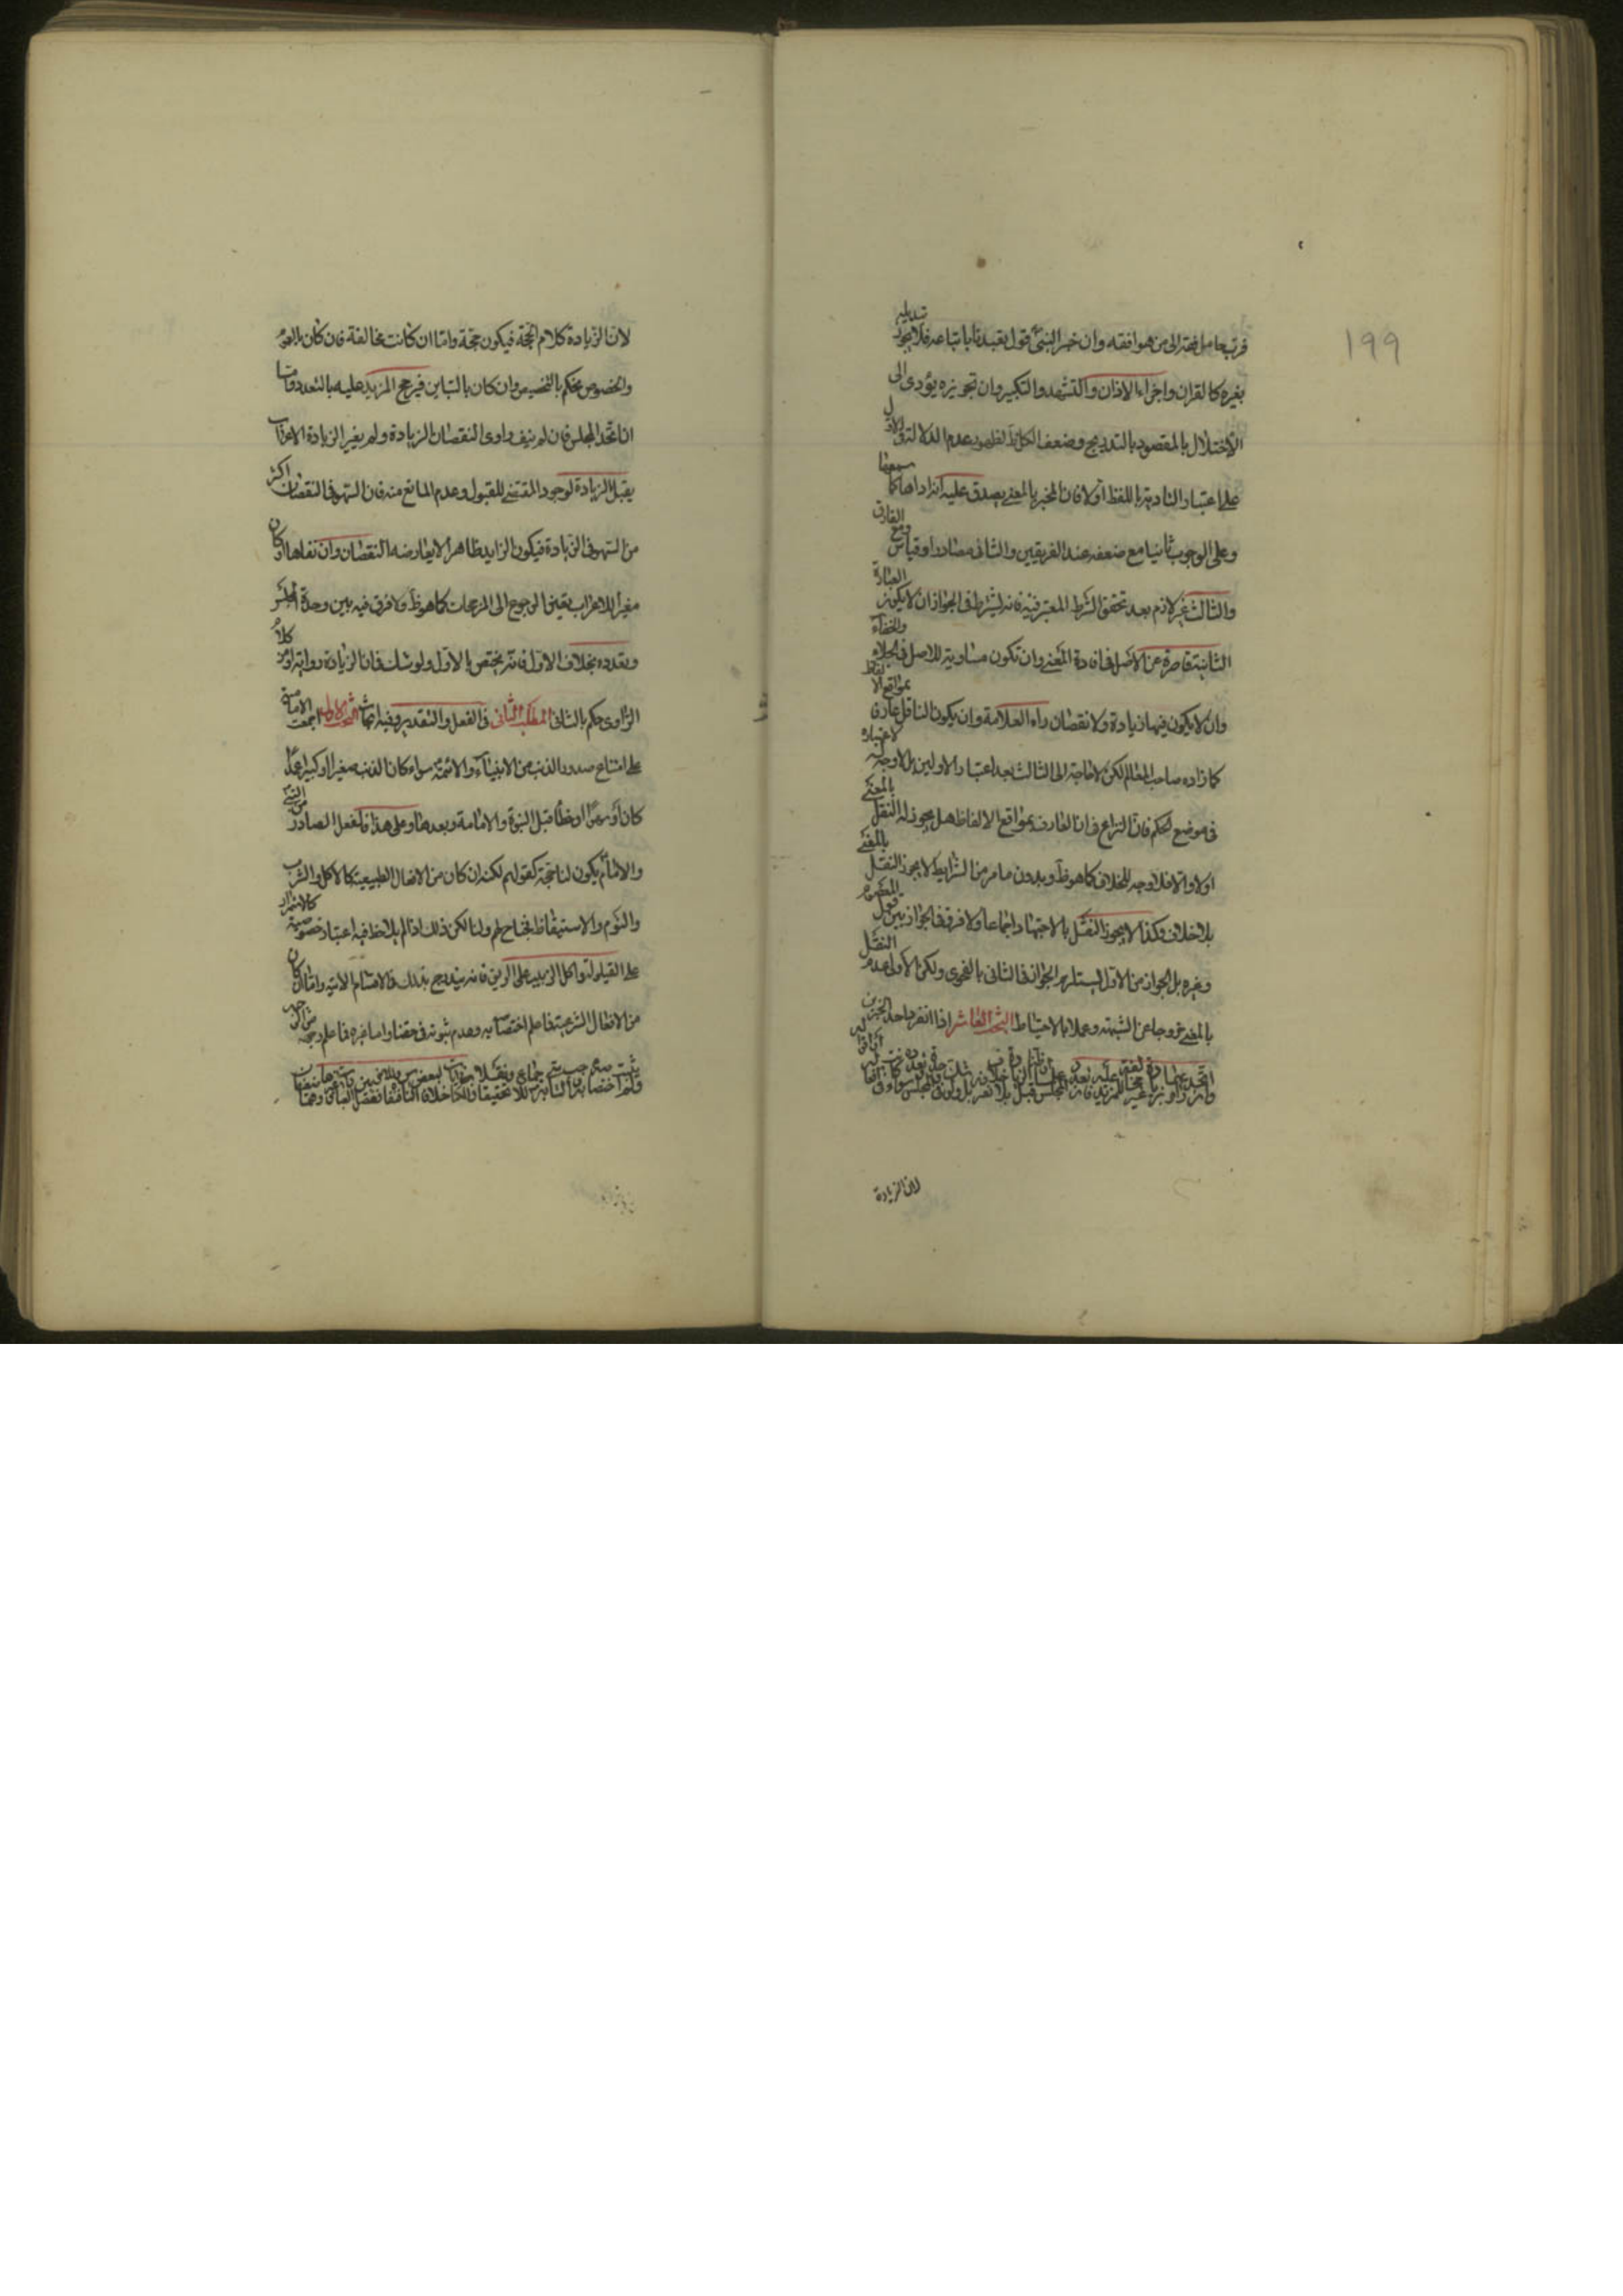 ١٩٩
فرب حامل فقه الى من هو افقه وان خبر النبي قول تعبدنا باتباعه فلا يجوز تبديله
بغيره كالقران واجزاء الاذان والتشهد والتكبير وان تجويزه يؤدى الى
الاختلال بالمقصود بالتدريج وضعف الكل ظ لظهور عدم الدلالة فى الاول
على اعتبار التادية باللفظ اولا فان المخبر بالمعنى يصدق عليه انه اداها كما سمعها
وعلى الوجوب ثانيا مع ضعفه عند الفريقين والثانى مصادرة او قياس ومع الفارق
والثالث غير لازم بعد تحقق الشرط المعتبر فيه فانه يشترط فى الجواز ان لا يكون العبارة
الثانية قاصرة عن الاصل فى افادة المعنى وان تكون مساوية للاصل فى الجلاء والخفاء
وان لا يكون فيها زيادة ولا نقصان زاده العلامة وان يكون الناقل عارفا بمواقع الالفاظ
كما زاده صاحب المعالم لكن لا حاجة الى الثالث بعد اعتبار الاولين بل لا وجه لاعتباره
فى موضع الحكم فان النزاع فى ان العارف بمواقع الالفاظ هل يجوز له النقل بالمعنى
اولا والا فلا وجه للخلاف كما هو ظ وبدون ما مر من الشرايط لا يجوز النقل بالمعنى
بلا خلاف وكذا لا يجوز النقل بالاجتهاد اجماعا ولا فرق فى الجواز بين قول المعصوم
وغيره بل الجواز من الاول يستلزم الجواز فى الثانى بالفحوى ولكن الاولى عدم النقل
بالمعنى خروجا عن الشبهة وعملا بالاحتياط البحث العاشر اذا انفرد احد الخبرين
لان الزيادة
لان الزيادة كلام الحجة فيكون حجة واما ان كانت مخالفة فان كان بالعموم
والخصوص يحكم بالتخصيص وان كان بالتباين فيرجح المزيد عليه بالتعدد واما
ان اتحد المجلس فان لم ينف راوى النقصان الزيادة ولم يغير الزيادة الاعراب
يقبل الزيادة لوجود المقتضى للقبول وعدم المانع منه فان السهو فى النقصان اكثر
من السهو فى الزيادة فيكون الزايد ظاهرا لا يعارضه النقصان وان نفاها او كان
مغيرا للاعراب تعين الرجوع الى المرجحات كما هو ظ ولا فرق فيه بين وحدة المجلس
وتعدده بخلاف الاول فانه يختص بالاول ولو شك فى ان الزيادة رواية او من كلام
الراوى حكم بالثانى المطلب الثانى فى الفعل والتقدير وفيه ابحاث البحث الاول اجمعت الامامية
على امتناع صدور الذنب من الانبياء والائمة سواء كان الذنب صغيرا او كبيرا عمدا
كان او سهوا او خطأ قبل النبوة والامامة وبعدها وعلى هذا فالفعل الصادر من النبي
والامام يكون لنا حجة كقولهم لكنه ان كان من الافعال الطبيعية كالاكل والشرب
والنوم والاستيقاظ فمباح لهم ولنا لكن ذلك اذا لم يلاحظ فيه اعتبار خصوصية كالاستمرار
على القيلولة واكل الزبيب على الريق فانه يندرج بذلك فى الاقسام الاتية واما ان كان
من الافعال الشرعية فما علم اختصاصه به وعدم ثبوته فى حقنا واما غيره فما علم وجهه